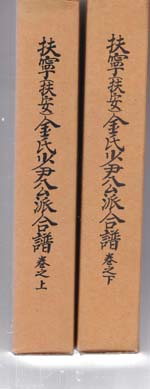 扶寧(扶安)金氏少尹公派合譜 卷之上
扶寧(扶安)金氏少尹公派合譜 卷之下